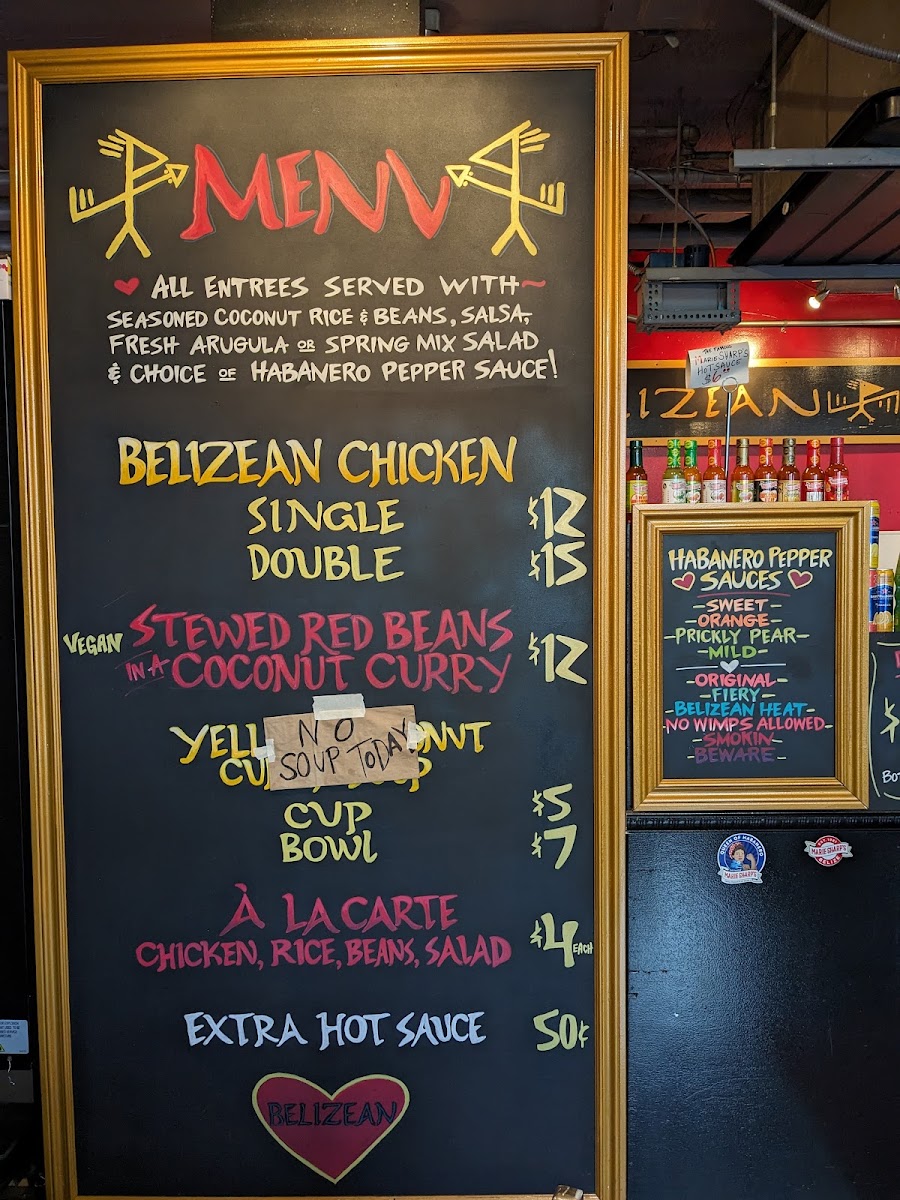 MENU
ALL ENTREES SERVED WITH
SEASONED COCONUT RICE & BEANS, SALSA,
FRESH ARUGULA OR SPRING MIX SALAD
& CHOICE OF HABANERO PEPPER SAUCE!
BELIZEAN CHICKEN
SINGLE $12
DOUBLE $15
VEGAN STEWED RED BEANS
IN A COCONUT CURRY $12
NO
SOUP TODAY!
CUP $5
BOWL $7
À LA CARTE
CHICKEN, RICE, BEANS, SALAD $4 EACH
EXTRA HOT SAUCE 50¢
BELIZEAN
THE FAMOUS
MARIE SHARP'S
HOT SAUCE
LIZEAN
HABANERO PEPPER
SAUCES
-SWEET-
-ORANGE-
-PRICKLY PEAR-
-MILD-
-ORIGINAL-
-FIERY-
-BELIZEAN HEAT-
-NO WIMPS ALLOWED-
-SMOKIN-
-BEWARE-
QUEEN OF HABANERO
MARIE SHARP'S
MARIE SHARP'S
BELIZE